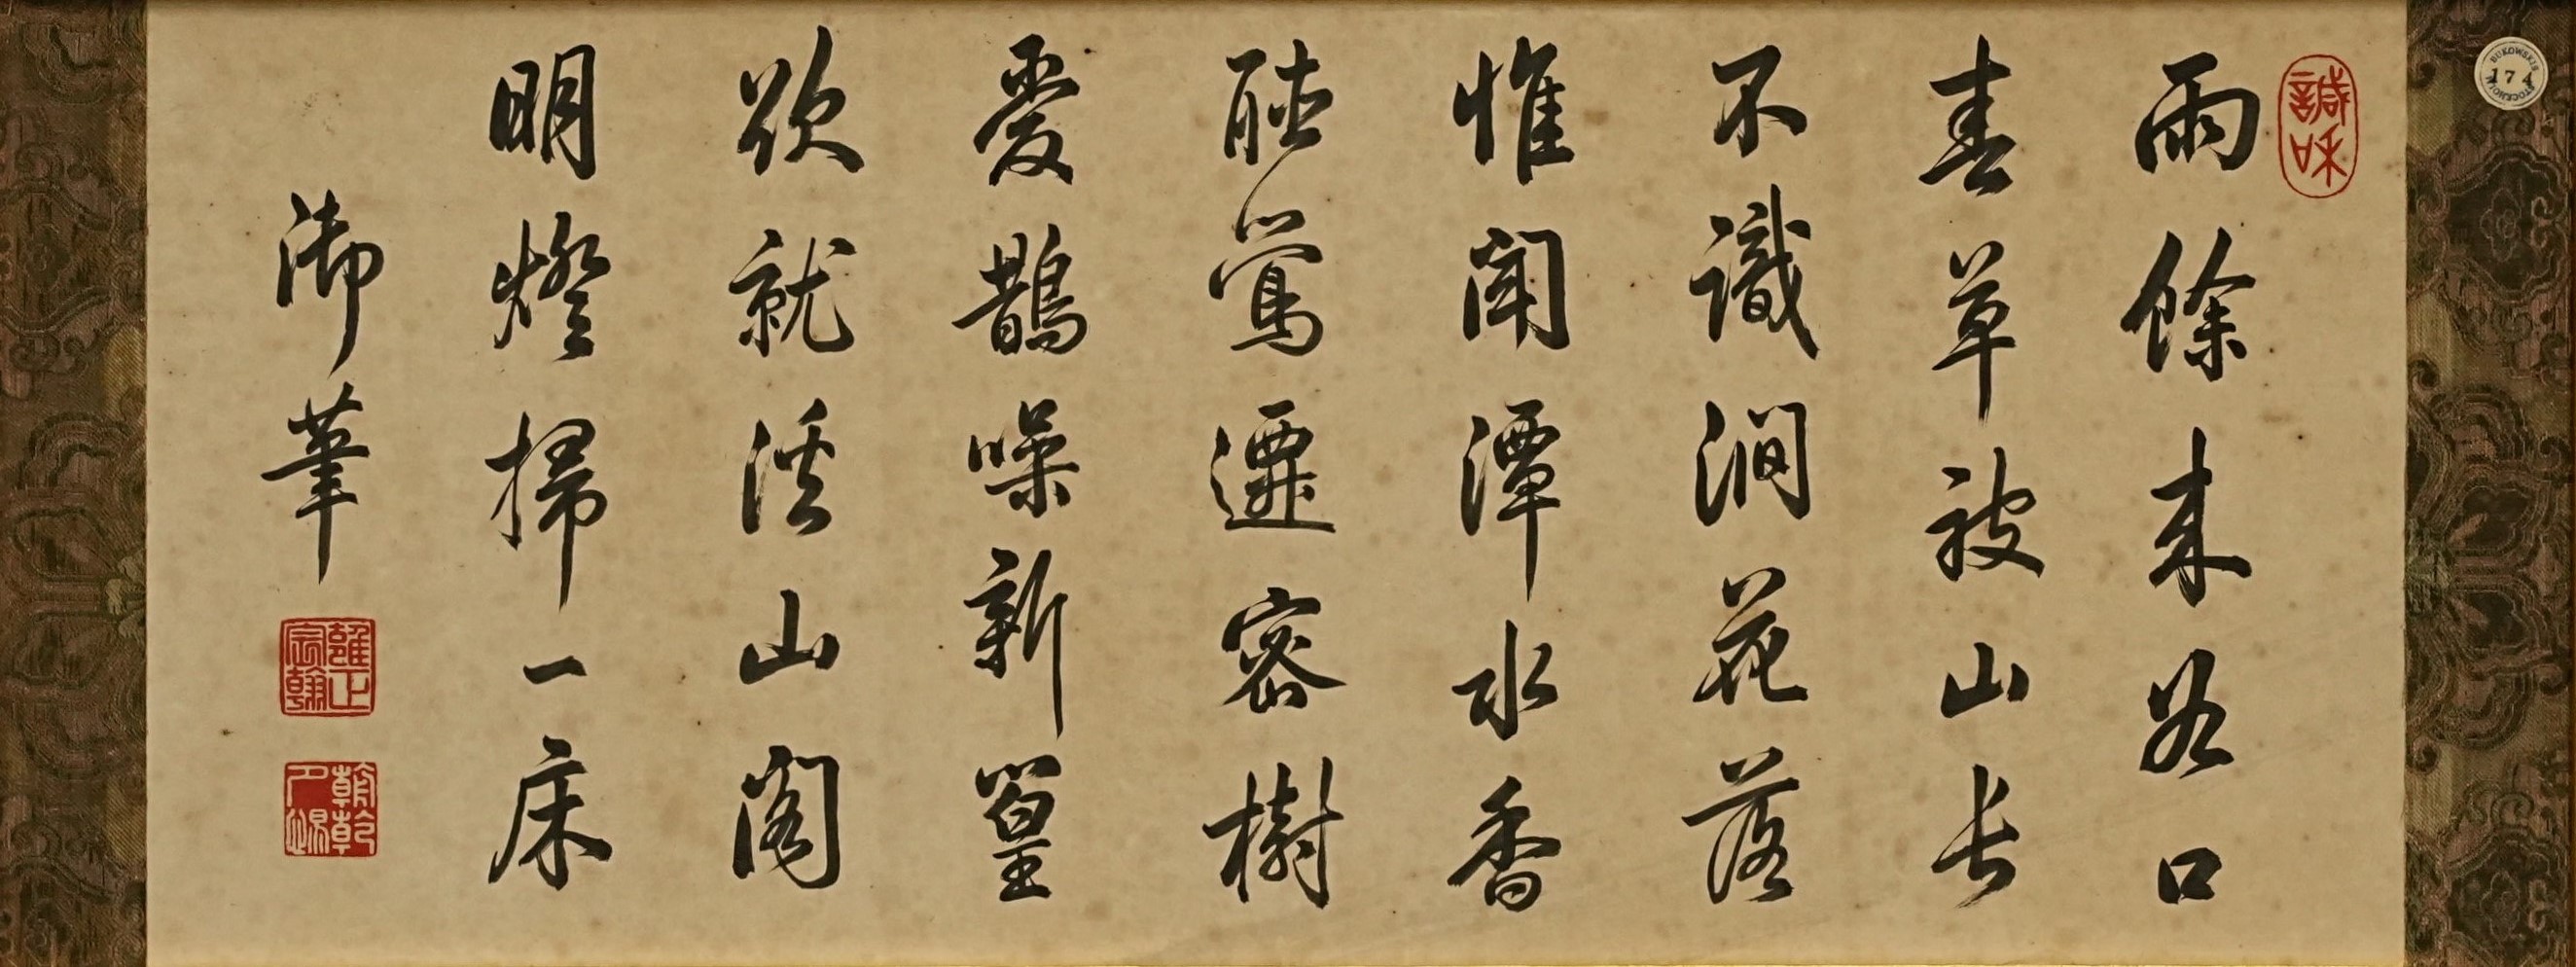 雨餘來谷口
春草被山長
不識澗花落
惟聞潭水香
聴鶯遷密樹
愛鵲噪新篁
欲就溪山閣
明燈掃一床
御筆
雍正宸翰
朝乾夕惕
諴和
BUKOWSKIS STOCKHOLM
174